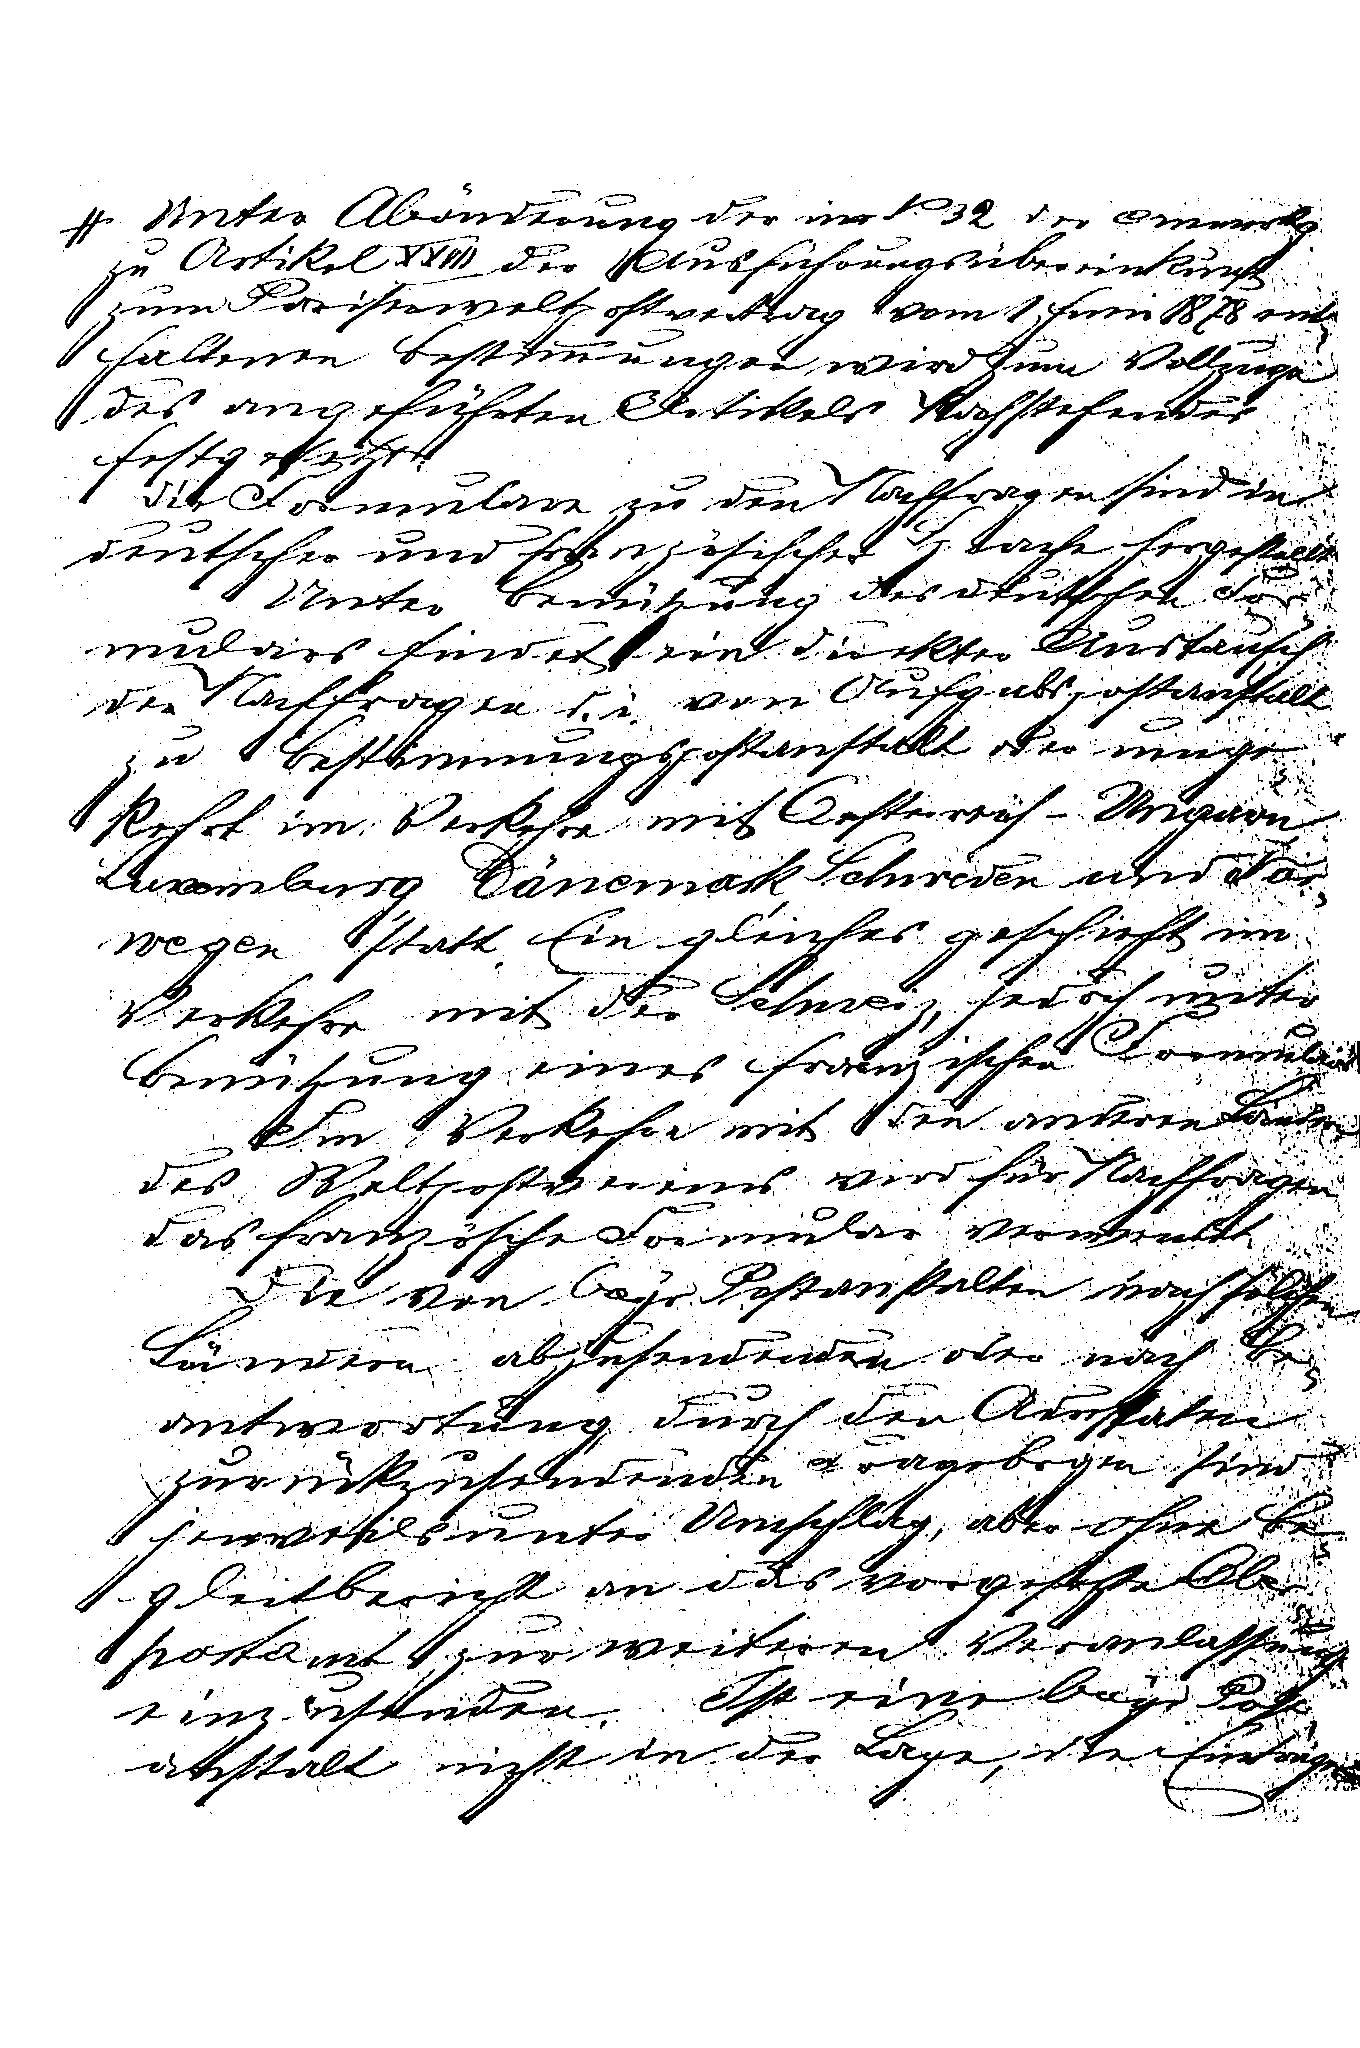 # Unter Abänderung der im № 32 der Anmerkg
zu Artikel XXVII der Ausführungsübereinkunft
zum Pariserweltpostvertrag vom 1 Juni 1878 ent-
haltenen Bestimmungen wird zum Vollzuge
des angeführten Artikels Nachstehendes
festgesetzt.
Die Formulare zu den Nachfragen sind in
deutscher und französischer Sprache hergestellt
Unter Benützung des deutschen For-
mulars findet ein direkter Austausch
der Nachfragen d. i. von Aufgabspostanstalt
zu Bestimmungspostanstalt oder umge-
kehrt im Verkehre mit Oesterreich-Ungarn,
Luxemburg Dänemark, Schweden und Nor-
wegen statt. Ein gleiches geschieht im
Verkehre mit der Schweiz, jedoch unter
Benützung eines französischen Formulars
Im Verkehre mit den anderen Ländern
des Weltpostvereins wird für Nachfragen
das französche Formular verwendet
Die von bayr Postanstalten nach solchen
Ländern abzusendenden oder nach Be-
antwortung durch den Adressaten
zurückzusendenden Fragebogen sind
jeweils unter Umschlag, aber ohne Be-
gleitbericht an das vorgesetzte Ober-
postamt zur weiteren Veranlassung
einzusenden. Ist eine bayr Post-
anstalt nicht in der Lage, die Einträge